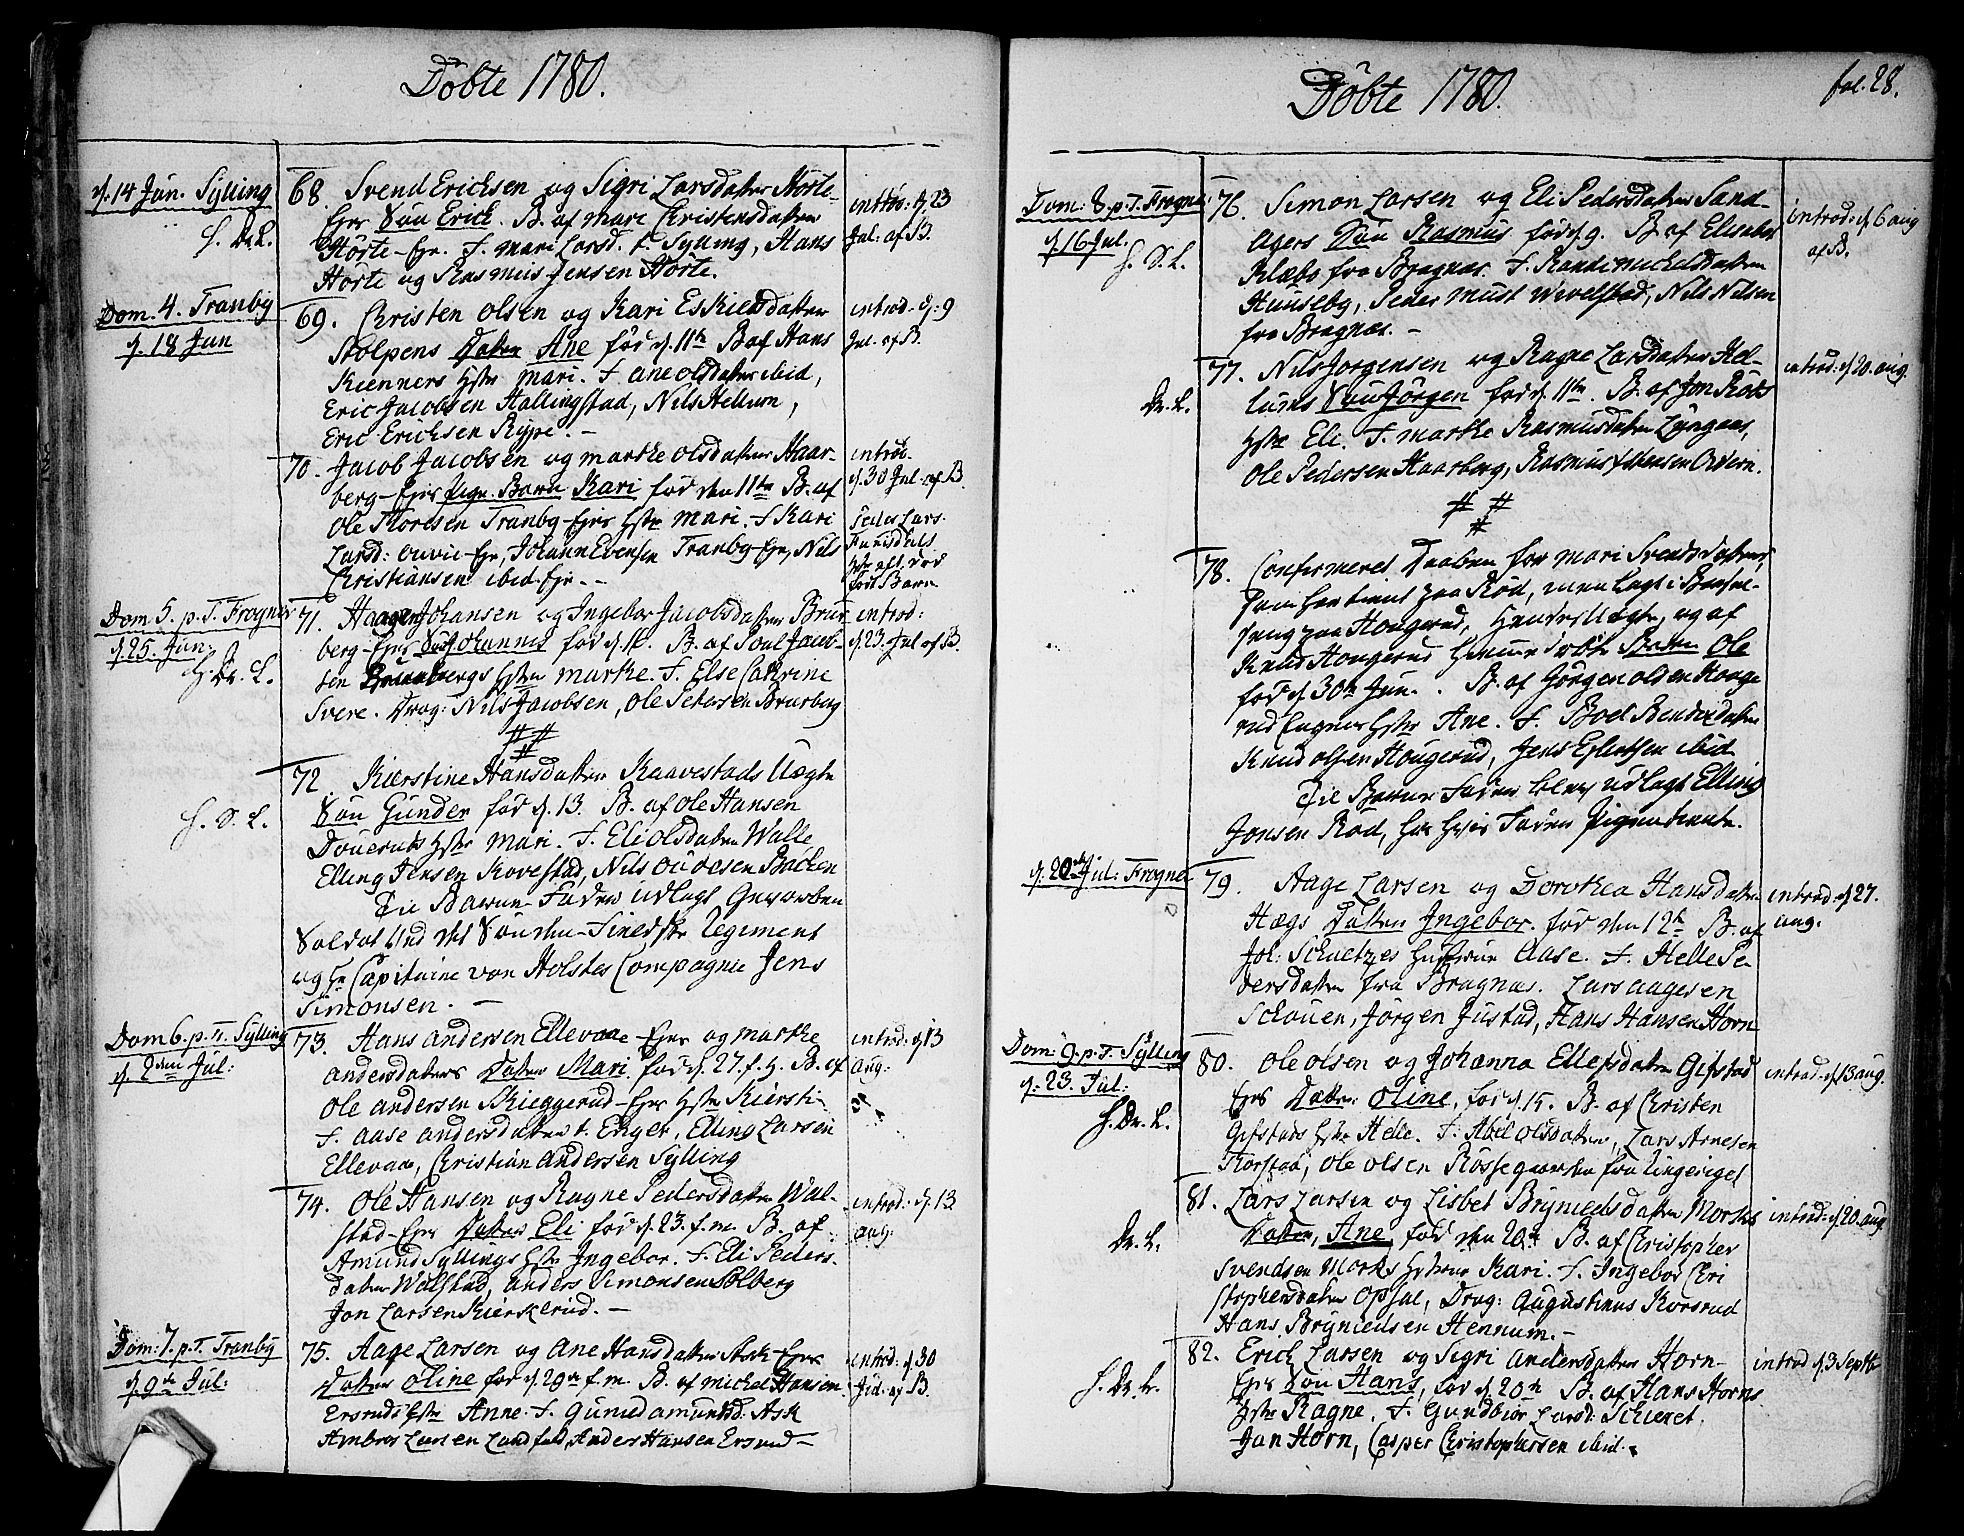 Döbte 1780.
d. 14 Jun. Sylling
H. Dr. L.
68. Svend Ericksen og Sigri Larsdatter Hörte-
Ejes Sön Erick. B. af Mari Christensdatter
Hörte-Eje. F. Mari Larsd. Sylling, Hans
Hörte og Rasmus Jensen Hörte.
introd: d. 23
Jul: af B.
Dom. 4. Tranby
d. 18 Jun
69. Christen Olsen og Kari Eskildsdatter
Stolpens Datter Ane föd d. 11te B. af Hans
Kienners Hstr Mari. F. Ane Olsdatter ibid,
Eric Jacobsen Hallingstad, Nils Hellum,
Eric Ericksen Rype. -
introd- d: 9
Jul. af B.
70. Jacob Jacobsen og Marthe Olsdatter Haar-
berg-Ejes Pige-Barn Kari föd den 11te B. af
Ole Thoresen Tranby-Ejes Hstr Mari. F. Kari
Larsd: Ouvie-Eje, Johann Evensen Tranby-Eje, Nils
Christiansen ibid-Eje. -
introd.
d. 30 Jul. af B.
Dom. 5. p. T. Frogner
d. 25. Jun.
H. Dr. L.
71. Haagen Johansen og Ingebor Jacobsdatter Brur-
berg-Ejes Sön Johannes föd d. 16. B. af Poul Jacob-
sen Bruurbergs Hstr Marthe. F. Else Cathrine
Svere. Drag: Nils Jacobsen, Ole Petersen Brurberg
introd:
d. 23. Jul af B.
H. S. L.
72 Kierstine Hansdatter Kaavestads Uægte
Sön Gunder föd d. 13. B. af Ole Hansen
Döueruds Hstr Mari. F. Eli Olsdatter Walle
Elling Jensen Kovestad, Nils Oudesen Backen
Til Barne-Fader udlagt Gevorben
Soldat Und det Sönden-Fieldske Regiment
og Hr Capitaine von Holstes Compagnie Jens
Simonsen. -
Dom 6. p. Tr. Sylling
d. 2den Jul:
73. Hans Andersen Ellevaae-Ejes og Marthe
Andersdatters Datter Mari föd d. 27. f. M. B. af
Ole Andersen Skieggerud-Ejes Hstr Kiersti
F. Aase Andersdatter Enger, Elling Larsen
Ellevaae, Christian Andersen Sylling
introd: d. 13
Aug:
74. Ole Hansen og Ragne Pedersdatter Wal-
stad-Ejes Datter Eli föd d. 23. f. m. B. af
Amund Syllings Hstr Ingebor. F. Eli Peders-
datter Walstad, Anders Simonsen Solberg
Jon Larsen Kierkerud. -
introd: d. 13
Aug:
Dom: 7. p. T. Tranby
d. 9de Jul:
75. Aage Larsen og Ane Hansdatter Ask Ejes
Datter Oline föd d. 29de f. m. B. af Michel Hansen
Ersruds Hstr Anne. F. Guned Amundsd: Ask
Ambros Larsen Landfald, Anders Hansen Ersrud-
introd: d. 30
Jul: af B.
Döbte 1780.
fol. 28.
Dom: 8. p. T. Frogner
d. 16 Jul.
H. S. L.
76. Simon Larsen og Eli Pedersdatter Sand-
agers Sön Rasmus föd d. 9. B af Elisabet
Klæbs fra Bragnæs. F. Randi Mickelsdatter
Huuseby, Peder Must Wevelstad, Nils Nilsen
fra Bragnæs. -
introd: d. 6 aug
af B.
Dr. L.
77. Nils Jorgensen og Ragne Larsdatter Hel-
lums Sön Jörgen föd d. 11te. B. af Jon Röks
Hstr Eli. F. Marthe Rasmusdatter Lyngaas,
Ole Pedersen Haarberg, Rasmus Ovdern.
introd: d. 20. aug.
78. Confirmeret Daaben for Mari Svendsdatter,
som har tient paa Röd, men lagt i Barsel-
seng paa Hougerud, Hendes Uægte, og af
Knud Hougerud Hiemme döbt Barn Ole
föd d. 30te Jun. B. af Görgen Olsen Houge
rud Hstr Ane. F. Boel Bendixdatter
Knud Olsen Hougerud, Jens ibid
Til Barne Fader blev udlagt Elling
Jonsen Röd, hos hvis Fader Pigen tiente.
d. 20de Jul: Frogner
79. Aage Larsen og Dorothea Hansdatter
Hægs Datter Ingebor. föd den 12te B. af
Joh: Schuetzes Hustrue Aase. F. Helle Pe
dersdatter fra Bragnæs. Lars Aagesen
Schouen, Jörgen Justad, Hans Hansen Horn
introd: d. 27.
aug:
Dom: 9. p. T. Sylling
d. 23. Jul:
H. Dr. L.
80. Ole Olsen og Johanna Ellefsdatter Gifstad
Ejes Datter Oline, föd d. 15. B. af Christen
Gifstads Hstr Helle. F. Abel Olsdatter, Lars Arnesen
Ole Olsen fra Ringeriget
introd: d. 13 aug.
Dr. L.
81. Lars Larsen og Lisbet Bryniedsdatter Morks
Datter, Ane, föd den 20de B. af Christopher
Svendsen Morks Hstrue Kari. F. Ingebor Chri
stophersdatter Opsal, Drag: Augustinus Korsrud
Hans Bryniedsen Hennum. -
introd: d. 20. aug
H. Dr. L.
82. Erick Larsen og Sigri Andersdatter Horn-
Ejes Sön Hans, föd d. 20de B. af Hans Horns
Hstr Ragne. F. Gundbior Larsd: Schieret.
Jan Horn, Casper Christophersen ibid.
introd d. 3 Septb